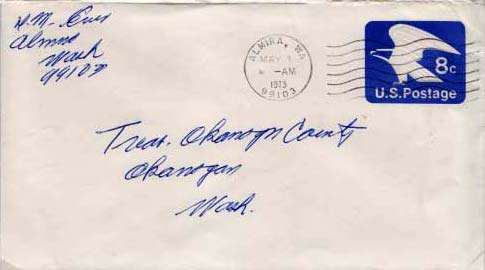 Almira
Wash
99103
ALMIRA, WA
MAY 1
AM
1973
99103
8c
U.S. Postage
Treas. Okanogan County
Okanogan
Wash.